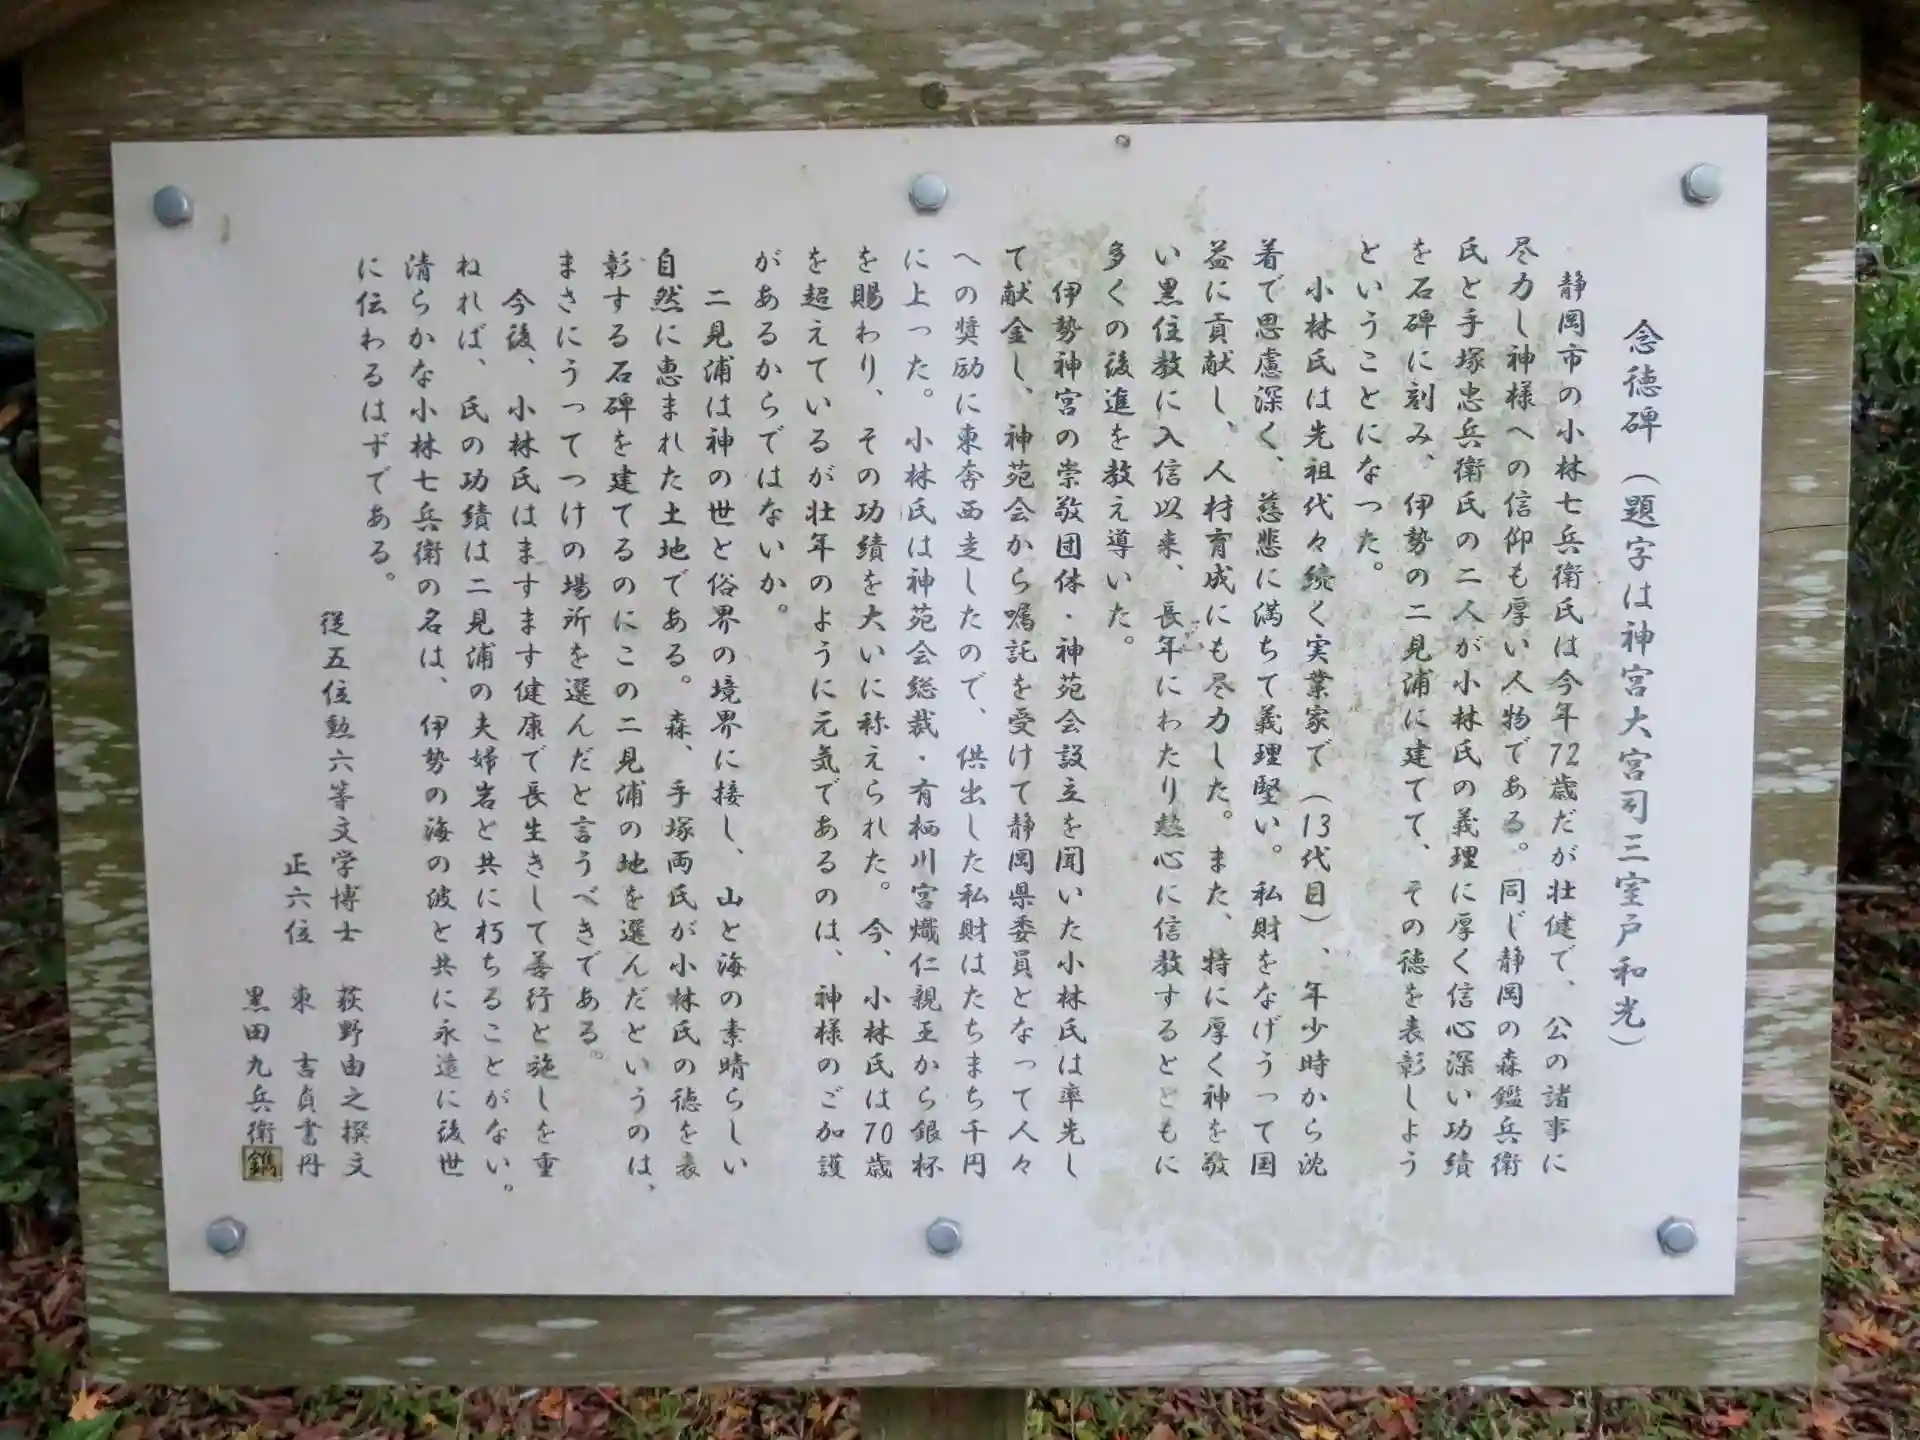 念徳碑（題字は神宮大宮司三室戸和光）
静岡市の小林七兵衛氏は今年72歳だが壮健で、公の諸事に
尽力し神様への信仰も厚い人物である。同じ静岡の森鑑兵衛
氏と手塚忠兵衛氏の二人が小林氏の義理に厚く信心深い功績
を石碑に刻み、伊勢の二見浦に建てて、その徳を表彰しよう
ということになった。
小林氏は先祖代々続く実業家で（13代目）、年少時から沈
着で思慮深く、慈悲に満ちて義理堅い。私財をなげうって国
益に貢献し、人材育成にも尽力した。また、特に厚く神を敬
い黒住教に入信以来、長年にわたり熱心に信教するとともに
多くの後進を教え導いた。
伊勢神宮の崇敬団体・神苑会設立を聞いた小林氏は率先し
て献金し、神苑会から嘱託を受けて静岡県委員となって人々
への奨励に東奔西走したので、供出した私財はたちまち千円
に上った。小林氏は神苑会総裁・有栖川宮熾仁親王から銀杯
を賜わり、その功績を大いに称えられた。今、小林氏は70歳
を超えているが壮年のように元気であるのは、神様のご加護
があるからではないか。
二見浦は神の世と俗界の境界に接し、山と海の素晴らしい
自然に恵まれた土地である。森、手塚両氏が小林氏の徳を表
彰する石碑を建てるのにこの二見浦の地を選んだというのは、
まさにうってつけの場所を選んだと言うべきである。
今後、小林氏はますます健康で長生きして善行と施しを重
ねれば、氏の功績は二見浦の夫婦岩と共に朽ちることがない。
清らかな小林七兵衛の名は、伊勢の海の波と共に永遠に後世
に伝わるはずである。
従五位勲六等文学博士　荻野由之撰文
正六位　東　吉貞書丹
黒田九兵衛鐫